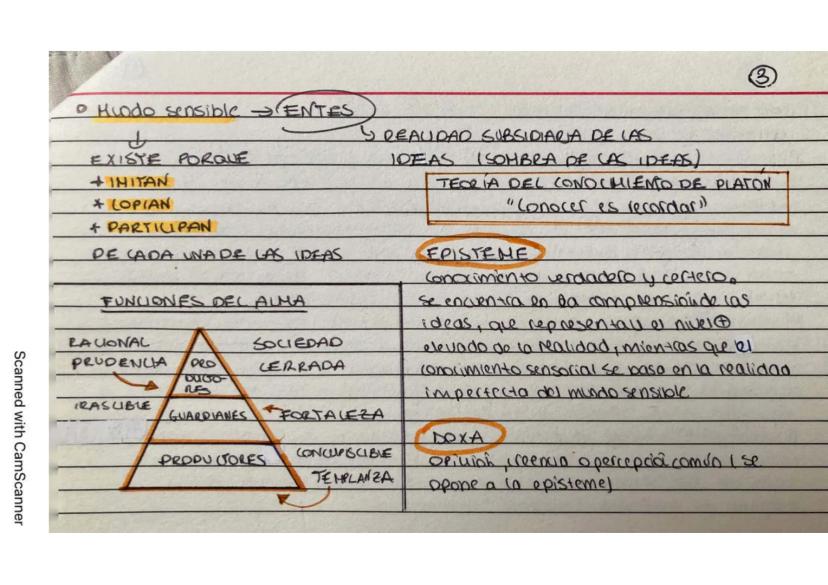 3
Mundo sensible → ENTES
↳ REALIDAD SUBSIDIARIA DE LAS
IDEAS (SOMBRA DE LAS IDEAS)
EXISTE PORQUE
+ IMITAN
* COPIAN
* PARTICIPAN
DE CADA UNA DE LAS IDEAS
TEORÍA DEL CONOCIMIENTO DE PLATÓN
"Conocer es recordar"
EPISTEME
Conocimiento verdadero y certero.
se encuentra en la comprensión de las
ideas, que representan el nivel ⊕
elevado de la realidad, mientras que el
conocimiento sensorial se basa en la realidad
imperfecta del mundo sensible
DOXA
Opinión, creencia o percepción común (se
opone a la episteme)
FUNCIONES DEL ALMA
RACIONAL
PRUDENCIA
PRO
DUCTO-
RES
SOCIEDAD
CERRADA
IRASCIBLE
GUARDIANES
FORTALEZA
PRODUCTORES
CONCUPISCIBLE
TEMPLANZA
Scanned with CamScanner